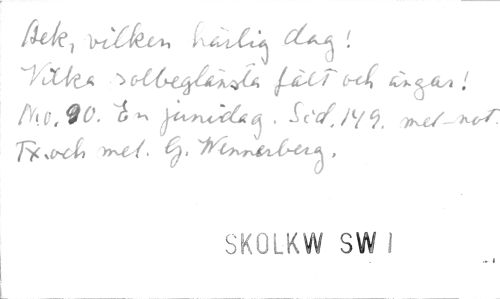 Ack, vilken härlig dag!
Vilka solbeglänsta fält och ängar!
No. 90. En junidag. Sid. 149. mel-not.
Tx. och mel. G. Wennerberg.
SKOLKW SW 1